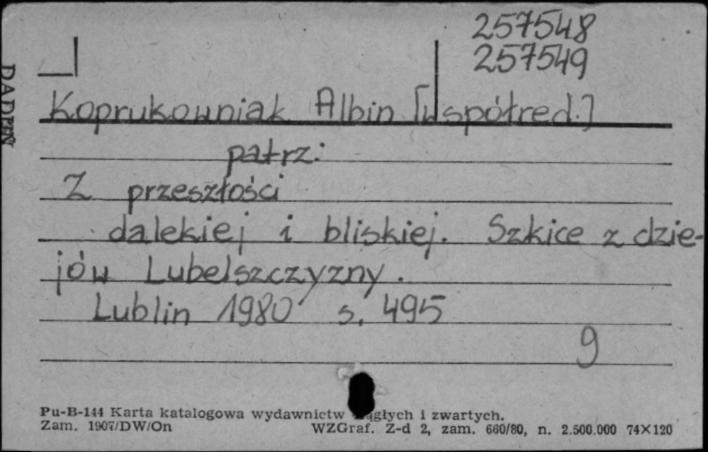 257548
257549
DADPIN
Koprukowniak Albin [współred.]
patrz:
Z przeszłości
dalekiej i bliskiej. Szkice z dzie-
jów Lubelszczyzny.
Lublin 1980 s. 495
9
Pu-B-144 Karta katalogowa wydawnictw ciągłych i zwartych.
Zam. 1907/DW/On WZGraf. Z-d 2, zam. 660/80, n. 2.500.000 74×120